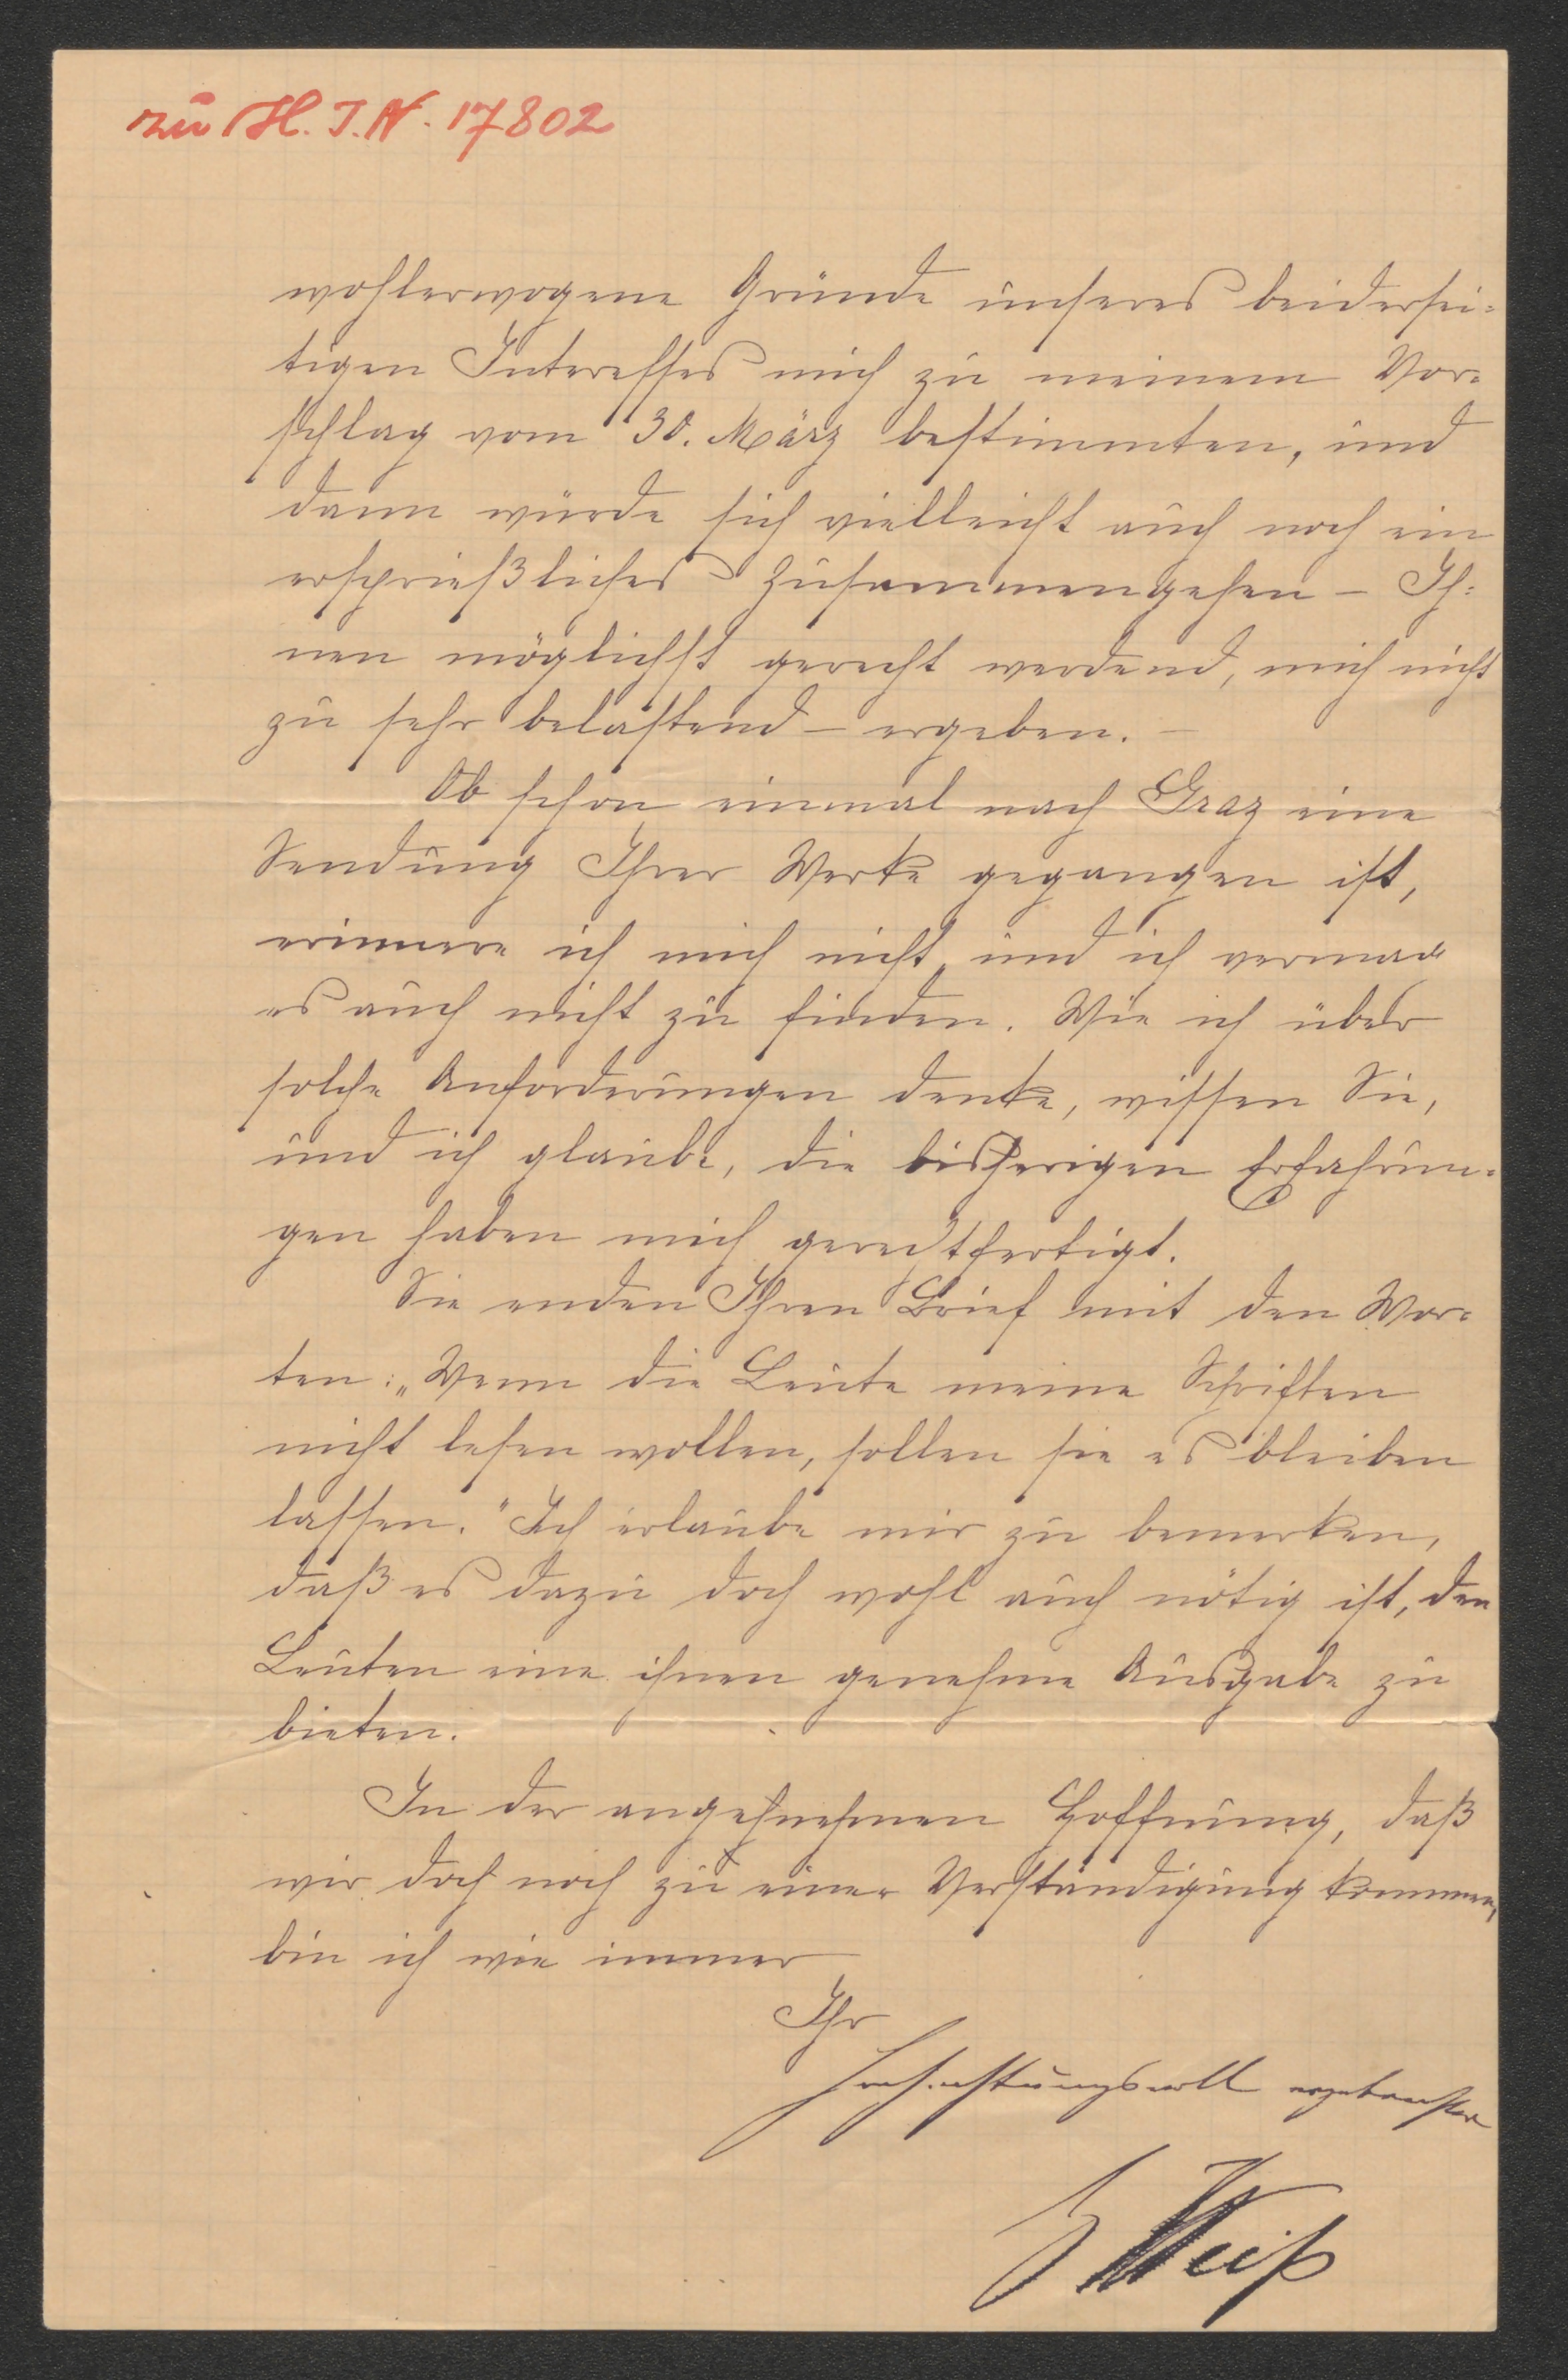 zu H. I. N. 17802
wohlerwogene Gründe unseres beidersei-
tigen Interesses mich zu meinem Vor-
schlag vom 30. März bestimmten, und
dann würde sich vielleicht auch noch ein
ersprießliches Zusammengehen – Ih-
nen möglichst gerecht werdend, mich nicht
zu sehr belastend – ergeben. –
Ob schon einmal nach Graz eine
Sendung Ihrer Werke gegangen ist,
erinnere ich mich nicht, und ich vermag
es auch nicht zu finden. Wie ich über
solche Anforderungen denke, wissen Sie,
und ich glaube, die bisherigen Erfahrun-
gen haben mich gerechtfertigt.
Sie enden Ihren Brief mit den Wor-
ten: „Wenn die Leute meine Schriften
nicht lesen wollen, sollen sie es bleiben
lassen." Ich erlaube mir zu bemerken,
daß es dazu doch wohl auch nötig ist, den
Leuten eine ihnen genehme Ausgabe zu
bieten.
In der angenehmen Hoffnung, daß
wir doch noch zu einer Verständigung kommen,
bin ich wie immer
Ihr
hochachtungsvoll ergebenster
Weiß